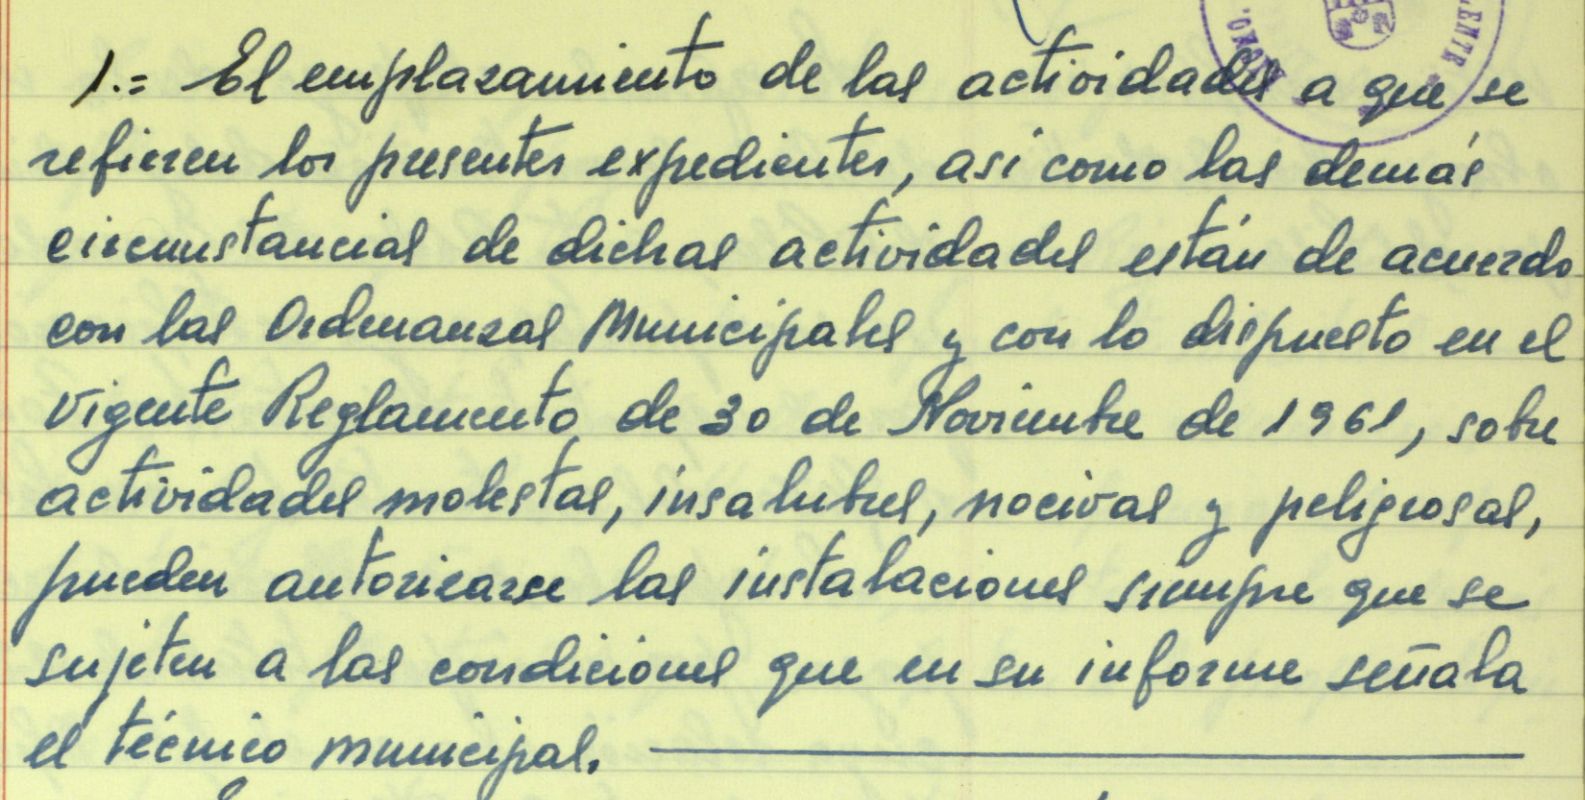 1.= El emplazamiento de las actividades a que se
refieren los presentes expedientes, asi como las demás
circunstancias de dichas actividades están de acuerdo
con las Ordenanzas Municipales y con lo dispuesto en el
Vigente Reglamento de 30 de Noviembre de 1961, sobre
actividades molestas, insalubres, nocivas y peligrosas,
pueden autorizarse las instalaciones siempre que se
sujeten a las condiciones que en su informe señala
el técnico municipal.